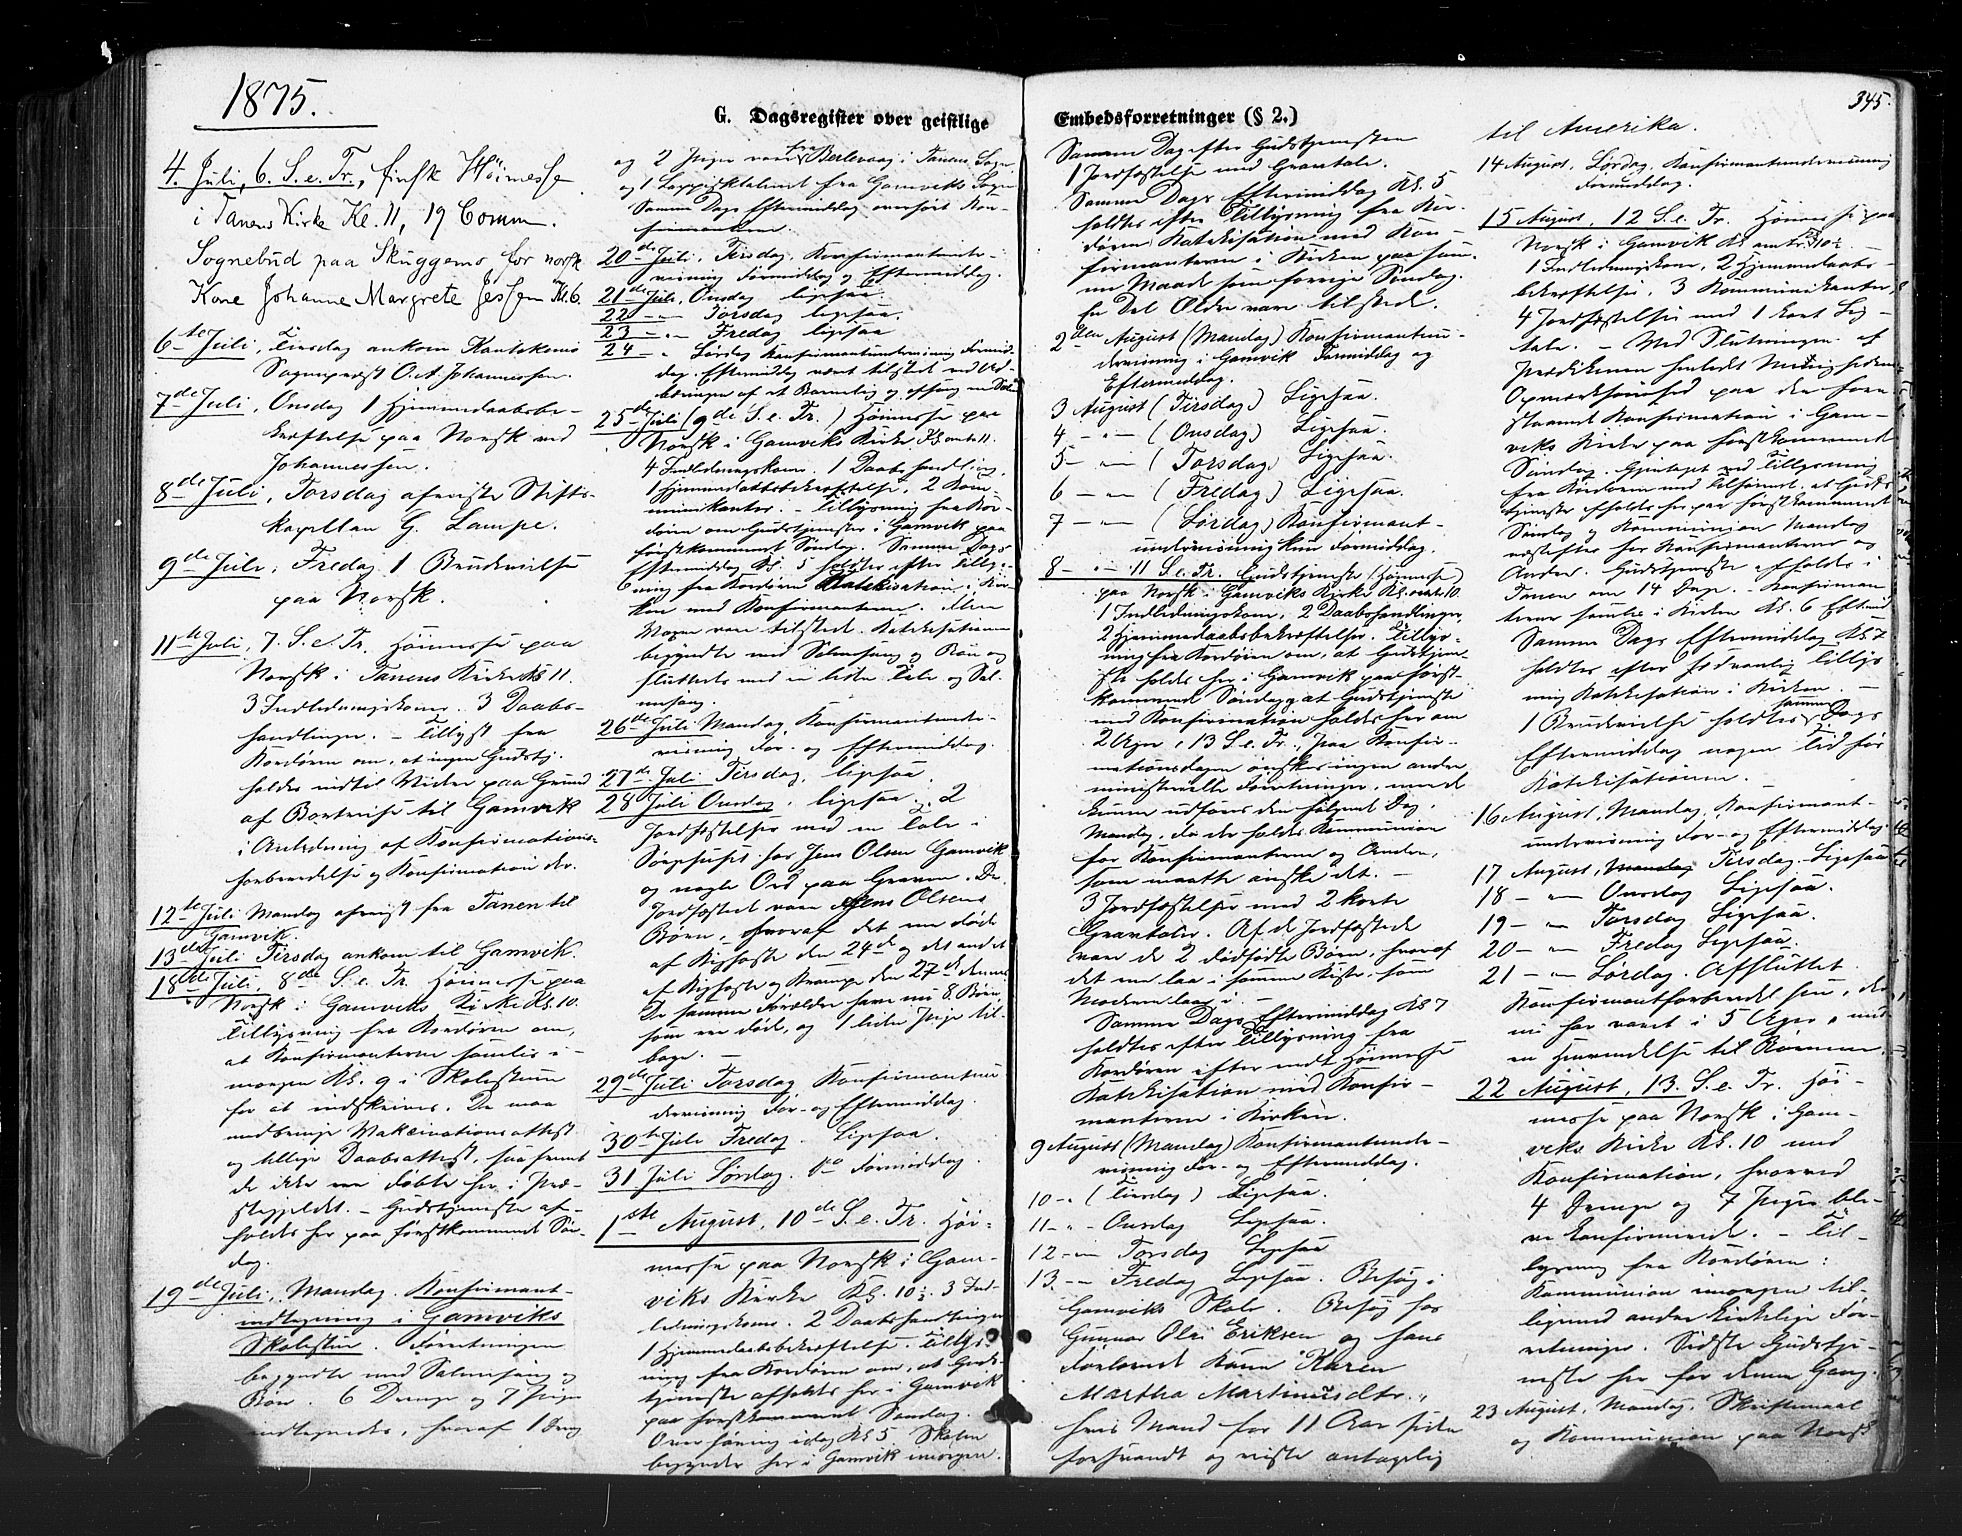 1875.
G. Dagsregister over geistlige
4. Juli, 6. S. e. Tr., finsk Høimesse
i Tanens Kirke Kl. 11, 19 Comm.
Sognebud paa Skuggemo for norsk
Kone Johanne Margrete Jessen Kl. 6.
6te Juli, Tirsdag ankom Kautokeino
Sognepræst O. A. Johannessen.
7de Juli, Onsdag 1 Hjemmedaabsbe-
kræftelse paa Norsk ved
Johannessen.
8de Juli, Torsdag afreiste Stifts-
kapellan G. Lampe.
9de Juli, Fredag 1 Brudevielse
paa Norsk.
11te Juli, 7. S. e. Tr. Høimesse paa
Norsk i Tanens Kirke Kl 11.
3 Indledningskoner. 3 Daabs-
handlinger. - Tillyst fra
Kordøren om, at ingen Gudstj.
holdes indtil Videre paa Grund
af Bortreise til Gamvik
i Anledning af Konfirmations-
forberedelse og Konfirmation der.
12te Juli Mandag afreist fra Tanen til
Gamvik.
13de Juli Tirsdag ankom til Gamvik.
18de Juli, 8de S. e. Tr. Høimesse paa
Norsk i Gamviks Kirke Kl. 10.
Tillysning fra Kordøren om,
at Konfirmanterne samles i-
morgen Kl. 9 i Skolestuen
for at indskrives. De maa
medbringe Vakcinationsattest
og tillige Daabsattest, saafremt
de ikke ere døbte her i Præ-
stegjeldet. - Gudstjeneste af-
holdes her paa førstkommende Søn-
dag.
19de Juli, Mandag. Konfirmant-
indtegning i Gamviks
Skolestue. Forretningen
begyndte med Salmesang og
Bøn. 6 Drenge og 7 Piger
indtegnedes, hvoraf 1 Dreng
og 2 Piger vare fra Berlevaag i Tanens Sogn
og 1 Lappisktalende fra Gamviks Sogn
Samme Dags Eftermiddag overhørt Kon-
firmanterne.
20de Juli, Tirsdag, Konfirmantunder-
visning Formiddag og Eftermiddag.
21de Juli, Onsdag ligesaa.
22 - " - Torsdag ligesaa.
23 - " - Fredag ligesaa
24 - " Lørdag Konfirmantundervisning Formid-
dag. Eftermiddag været tilstede ved
af et Barnelig og
25de Juli (9de S. e. Tr.) Høimesse paa
Norsk i Gamviks Kirke Kl. omtr. 11.
4 Indledningskoner. 1 Daabshandling.
1 Hjemmedaabsbekræftelse. 2 Kom-
munikanter. - Tillysning fra Kor-
døren om Gudstjeneste i Gamvik paa
førstkommende Søndag. Samme Dags
Eftermiddag Kl. 5 holdtes efter Tillys-
ning fra Kordøren Katekisation i Kir-
ken med Konfirmanterne.
vare tilstede. Katekisationen
begyndte med Salmesang og Bøn og
sluttedes med en liden Tale og Sal-
mesang.
26de Juli Mandag, Konfirmantunder-
visning For- og Eftermiddag.
27de Juli Tirsdag, ligesaa.
28 Juli Onsdag, ligesaa. 2
Jordfæstelser med en Tale i
Sørgehuset hos Jens Olsen Gamvik
og nogle Ord paa Graven. De
Jordfæstede vare Jens Olsens
Børn, hvoraf det ene døde
af Kighoste den 24de og det andet
af Kighoste og Krampe den 27de dennes
De samme Forældre have nu 8 Børn,
som ere døde, og 1 liden Pige til-
bage. -
29de Juli Torsdag Konfirmantun-
dervisning For- og Eftermiddag.
30te Juli Fredag. Ligesaa.
31 Juli Lørdag. Do Formiddag.
1ste August, 10de S. e. Tr. Høi-
messe paa Norsk i Gam-
viks Kirke Kl. 10½. 3 Ind-
ledningskoner. 2 Daabshandlinger
1 Hjemmedaabsbekræftelse. Tillys-
ning fra Kordøren om, at Guds-
tjeneste afholdes her i Gamvik
paa førstkommende Søndag.
Overhøring idag Kl. 5 Skolen
begynder her i Gamvik imorgen.
Embedsforretninger (§ 2.)
345.
Samme Dag efter Gudstjenesten
1 Jordfæstelse med Gravtale.
Samme Dags Eftermiddag Kl. 5
holdtes efter Tillysning fra Kor-
døren Katekisation med Kon-
firmanterne i Kirken paa sam-
me Maade som forrige Søndag.
En Del Ældre vare tilstede.
2den August (Mandag) Konfirmantun-
dervisning i Gamvik Formiddag og
Eftermiddag.
3 August (Tirsdag) Ligesaa.
4 - " - (Onsdag) Ligesaa.
5 - " - (Torsdag) Ligesaa.
6 - " - (Fredag) Ligesaa.
7 - " - (Lørdag) Konfirmant-
undervisning kun Formiddag.
8 - " - 11 S. e. Tr. Gudstjeneste (Høimesse)
paa Norsk i Gamviks Kirke Kl. omtr. 10.
1 Indledningskone, 2 Daabshandlinger,
2 Hjemmedaabsbekræftelser. Tillys-
ning fra Kordøren om, at Gudstjene-
ste holdes her i Gamvik paa først-
kommende Søndag og at Gudstjeneste
med Konfirmation holdes her om
2 Uger, 13 S. e. Tr., Paa Konfir-
mationsdagen ønskes ingen andre
ministerielle Forretninger, med
kunne udføres den følgende Dag,
Mandag, da der holdes Kommunion
for Konfirmanterne og Andre,
som maatte ønske det. -
3 Jordfæstelser med 2 korte
Gravtaler. Af de Jordfæstede
vare de 2 dødfødte Børn, hvoraf
det ene laa i samme Kiste, som
Moderen laa i. -
Samme Dags Eftermiddag Kl 7
holdtes efter Tillysning fra
Kordøren efter endt Høimesse
Katekisation med Konfir-
manterne i Kirken.
9 August (Mandag) Konfirmantunder-
visning For- og Eftermiddag.
10 - " (Tirsdag) Ligesaa.
11 - " - Onsdag Ligesaa.
12 - " - Torsdag Ligesaa
13 - " - Fredag Ligesaa. Besøg i
Gamviks Skole. Besøg hos
Gunnar Olai Eriksen og hans
forlovede Kone Karen
Martha Martinusdtr.,
hvis Mand for 11 Aar siden
forsvandt og reiste antagelig
til Amerika.
14 August, Lørdag, Konfirmantundervisning
Formiddag.
15 August, 12 S. e. Tr. Høimesse paa
Norsk i Gamvik Kl. omtr. 10½.
1 Indledningskone, 2 Hjemmedaabs-
bekræftelser, 3 Kommunikanter,
4 Jordfæstelser med 1 kort Lig-
tale. - Ved Slutningen af
Prædikenen henledet Menighedens
Opmærksomhed paa den fore-
staaende Konfirmation i Gam-
viks Kirke paa førstkommende
Søndag. Gjentaget ved Tillysning
fra Kordøren med Tilføiende, at Guds-
tjeneste holdes her paa førstkommende
Søndag og Kommunion Mandag
næstefter for Konfirmanterne og
Andre. Gudstjeneste afholdes i
Tanen om 14 Dage. - Konfirman-
terne samles i Kirken Kl. 6 Eftmid.
Samme Dags Eftermiddag Kl 7
holdtes efter sedvanlig Tillys-
ning Katekisation i Kirken. -
1 Brudevielse holdtes samme Dags
Eftermiddag nogen Tid før
Katekisationen.
16 August, Mandag, Konfirmant-
undervisning For- og Eftermiddag.
17 August, Mandag Tirsdag. Ligesaa
18 - " - Onsdag Ligesaa.
19 - " - Torsdag Ligesaa.
20 - " - Fredag Ligesaa.
21 - " - Lørdag. Afsluttet
Konfirmantforberedelsen, der
nu har varet i 5 Uger, med
en Henvendelse til Børnene.
22 August, 13. S. e. Tr. Høi-
messe paa Norsk i Gam-
viks Kirke Kl. 10 med
Konfirmation, hvorved
4 Drenge og 7 Piger ble-
ve konfirmerede. - Til-
lysning fra Kordøren:
Kommunion imorgen til-
ligemed andre kirkelige For-
retninger. Sidste Gudstje-
neste her for denne Gang.
23 August, Mandag. Skriftemaal
og Kommunion paa Norsk